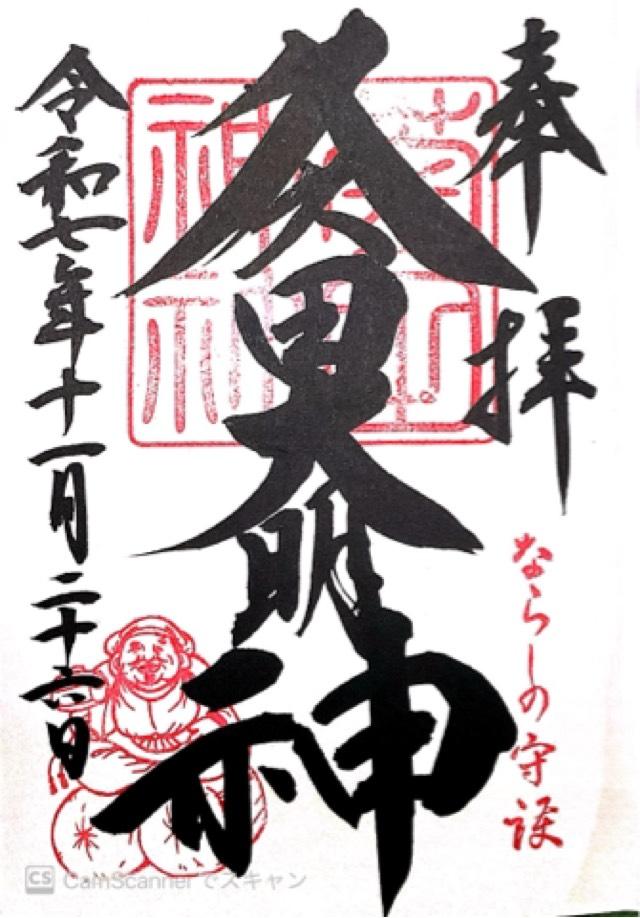 奉拝
ならしの守護
久久田大明神
令和七年十一月二十六日
CS CamScanner でスキャン